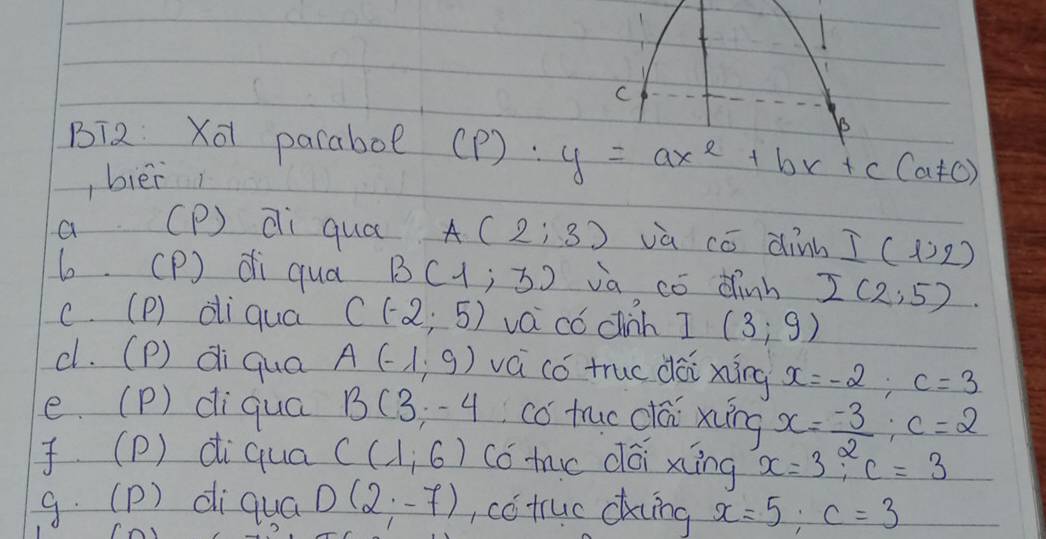 C
B
BT2: Xét parabol (P): y = ax² + bx + c (a≠0)
, biết:
a (P) đi qua A(2;3) và có đỉnh I(1;2)
b. (P) đi qua B(1;3) và có đỉnh I(2;5).
c. (P) đi qua C(-2;5) và có đỉnh I (3;9)
d. (P) đi qua A(-1;9) và có trục đối xứng x=-2; c=3
e. (P) đi qua B(3;-4 có trục đối xứng x=-3/2; c=2
f. (P) đi qua C(1;6) có trục đối xứng x=3; c=3
g. (P) đi qua D(2;-7), có trục đxứng x=5; c=3